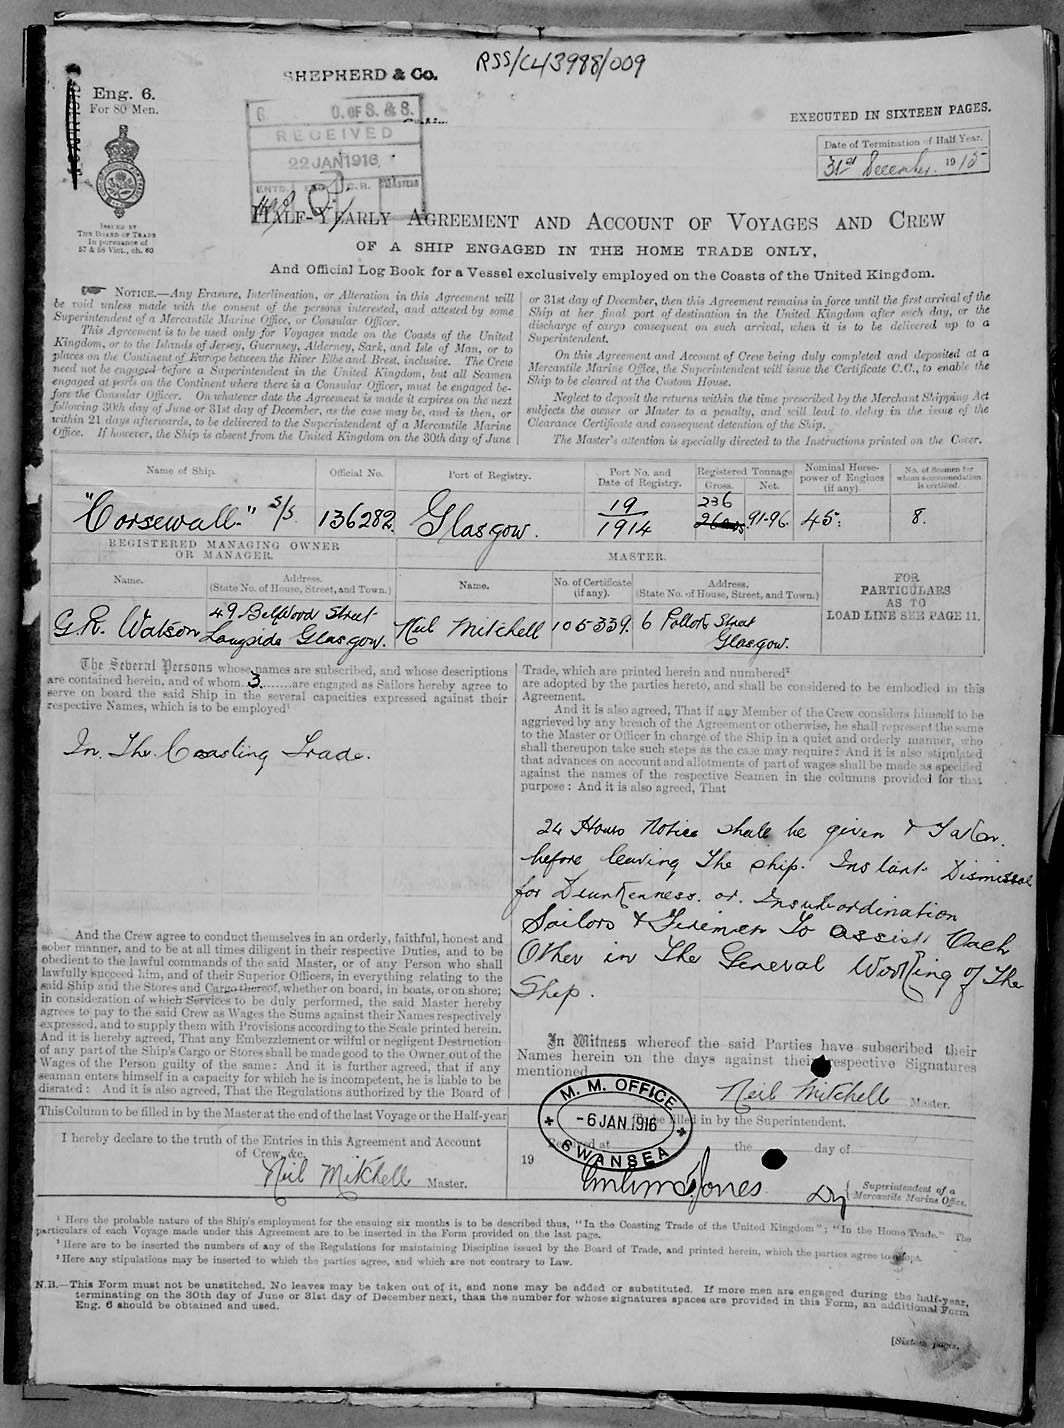 RSS/CL/3988/009
SHEPHERD & Co.
Eng. 6.
For 80 Men.
O. OF S. & S.
RECEIVED
22 JAN 1916
EXECUTED IN SIXTEEN PAGES.
Date of Termination of Half Year.
31st December. 1915
ISSUED BY
THE BOARD OF TRADE
In pursuance of
57 & 58 Vict., ch. 60
HALF-YEARLY AGREEMENT AND ACCOUNT OF VOYAGES AND CREW
OF A SHIP ENGAGED IN THE HOME TRADE ONLY,
And Official Log Book for a Vessel exclusively employed on the Coasts of the United Kingdom.
NOTICE.—Any Erasure, Interlineation, or Alteration in this Agreement will
be void unless made with the consent of the persons interested, and attested by some
Superintendent of a Mercantile Marine Office, or Consular Officer.
This Agreement is to be used only for Voyages made on the Coasts of the United
Kingdom, or to the Islands of Jersey, Guernsey, Alderney, Sark, and Isle of Man, or to
places on the Continent of Europe between the River Elbe and Brest, inclusive. The Crew
need not be engaged before a Superintendent in the United Kingdom, but all Seamen
engaged at ports on the Continent where there is a Consular Officer, must be engaged be-
fore the Consular Officer. On whatever date the Agreement is made it expires on the next
following 30th day of June or 31st day of December, as the case may be, and is then, or
within 21 days afterwards, to be delivered to the Superintendent of a Mercantile Marine
Office. If however, the Ship is absent from the United Kingdom on the 30th day of June
or 31st day of December, then this Agreement remains in force until the first arrival of the
Ship at her final port of destination in the United Kingdom after such day, or the
discharge of cargo consequent on such arrival, when it is to be delivered up to a
Superintendent.
On this Agreement and Account of Crew being duly completed and deposited at a
Mercantile Marine Office, the Superintendent will issue the Certificate C.C., to enable the
Ship to be cleared at the Custom House.
Neglect to deposit the returns within the time prescribed by the Merchant Shipping Act
subjects the owner or Master to a penalty, and will lead to delay in the issue of the
Clearance Certificate and consequent detention of the Ship.
The Master's attention is specially directed to the Instructions printed on the Cover.
Name of Ship. Official No. Port of Registry. Port No. and Date of Registry. Registered Tonnage Gross. Net. Nominal Horse-power of Engines (if any). No. of Seamen for whom accommodation is certified.
"Corsewall" S/S 136282 Glasgow. 19/1914 236 91.96 45. 8.
REGISTERED MANAGING OWNER OR MANAGER.
MASTER.
Name. Address. (State No. of House, Street, and Town.) Name. No. of Certificate (if any). Address. (State No. of House, Street, and Town.)
FOR PARTICULARS AS TO LOAD LINE SEE PAGE 11.
G.R. Watson 49 Bellwood Street Langside Glasgow. Neil Mitchell 105339. 6 Pollok Street Glasgow.
The Several Persons whose names are subscribed, and whose descriptions
are contained herein, and of whom 3 are engaged as Sailors hereby agree to
serve on board the said Ship in the several capacities expressed against their
respective Names, which is to be employed¹
In The Coasting Trade.
And the Crew agree to conduct themselves in an orderly, faithful, honest and
sober manner, and to be at all times diligent in their respective Duties, and to be
obedient to the lawful commands of the said Master, or of any Person who shall
lawfully succeed him, and of their Superior Officers, in everything relating to the
said Ship and the Stores and Cargo thereof, whether on board, in boats, or on shore;
in consideration of which Services to be duly performed, the said Master hereby
agrees to pay to the said Crew as Wages the Sums against their Names respectively
expressed, and to supply them with Provisions according to the Scale printed herein.
And it is hereby agreed, That any Embezzlement or wilful or negligent Destruction
of any part of the Ship's Cargo or Stores shall be made good to the Owner out of the
Wages of the Person guilty of the same: And it is further agreed, that if any
seaman enters himself in a capacity for which he is incompetent, he is liable to be
disrated: And it is also agreed, That the Regulations authorized by the Board of
Trade, which are printed herein and numbered²
are adopted by the parties hereto, and shall be considered to be embodied in this
Agreement.
And it is also agreed, That if any Member of the Crew considers himself to be
aggrieved by any breach of the Agreement or otherwise, he shall represent the same
to the Master or Officer in charge of the Ship in a quiet and orderly manner, who
shall thereupon take such steps as the case may require: And it is also stipulated
that advances on account and allotments of part of wages shall be made as specified
against the names of the respective Seamen in the columns provided for that
purpose: And it is also agreed, That
24 Hours Notice shall be given & Taken.
before leaving The ship. Instant Dismissal
for Drunkenness. or. Insubordination
Sailors & Firemen To assist Each
Other in The General Working of The
Ship.
In Witness whereof the said Parties have subscribed their
Names herein on the days against their respective Signatures
mentioned
Neil Mitchell Master.
This Column to be filled in by the Master at the end of the last Voyage or the Half-year
I hereby declare to the truth of the Entries in this Agreement and Account
of Crew, &c.
Neil Mitchell Master.
M. M. OFFICE
- 6 JAN 1916
SWANSEA
To be filled in by the Superintendent.
Received at the day of
19
Jones Dy Superintendent of a Mercantile Marine Office.
¹ Here the probable nature of the Ship's employment for the ensuing six months is to be described thus, "In the Coasting Trade of the United Kingdom"; "In the Home Trade." The
particulars of each Voyage made under this Agreement are to be inserted in the Form provided on the last page.
² Here are to be inserted the numbers of any of the Regulations for maintaining Discipline issued by the Board of Trade, and printed herein, which the parties agree to adopt.
³ Here any stipulations may be inserted to which the parties agree, and which are not contrary to Law.
N.B.—This Form must not be unstitched. No leaves may be taken out of it, and none may be added or substituted. If more men are engaged during the half-year,
terminating on the 30th day of June or 31st day of December next, than the number for whose signatures spaces are provided in this Form, an additional Form
Eng. 6 should be obtained and used.
[Sixteen pages.